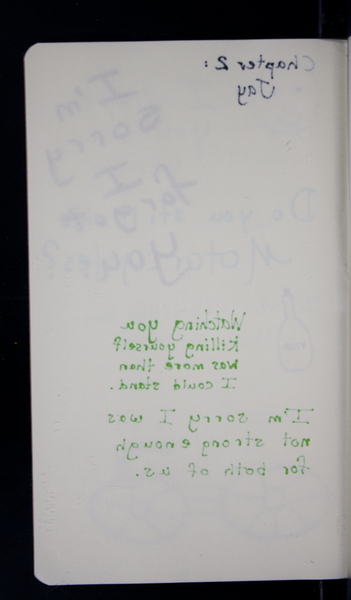 Chapter 2:
Jay
I'm
sorry
I
forgot
Do you
Watching you
Killing yourself
Was more than
I could stand.
I'm sorry I was
not strong enough
for both of us.